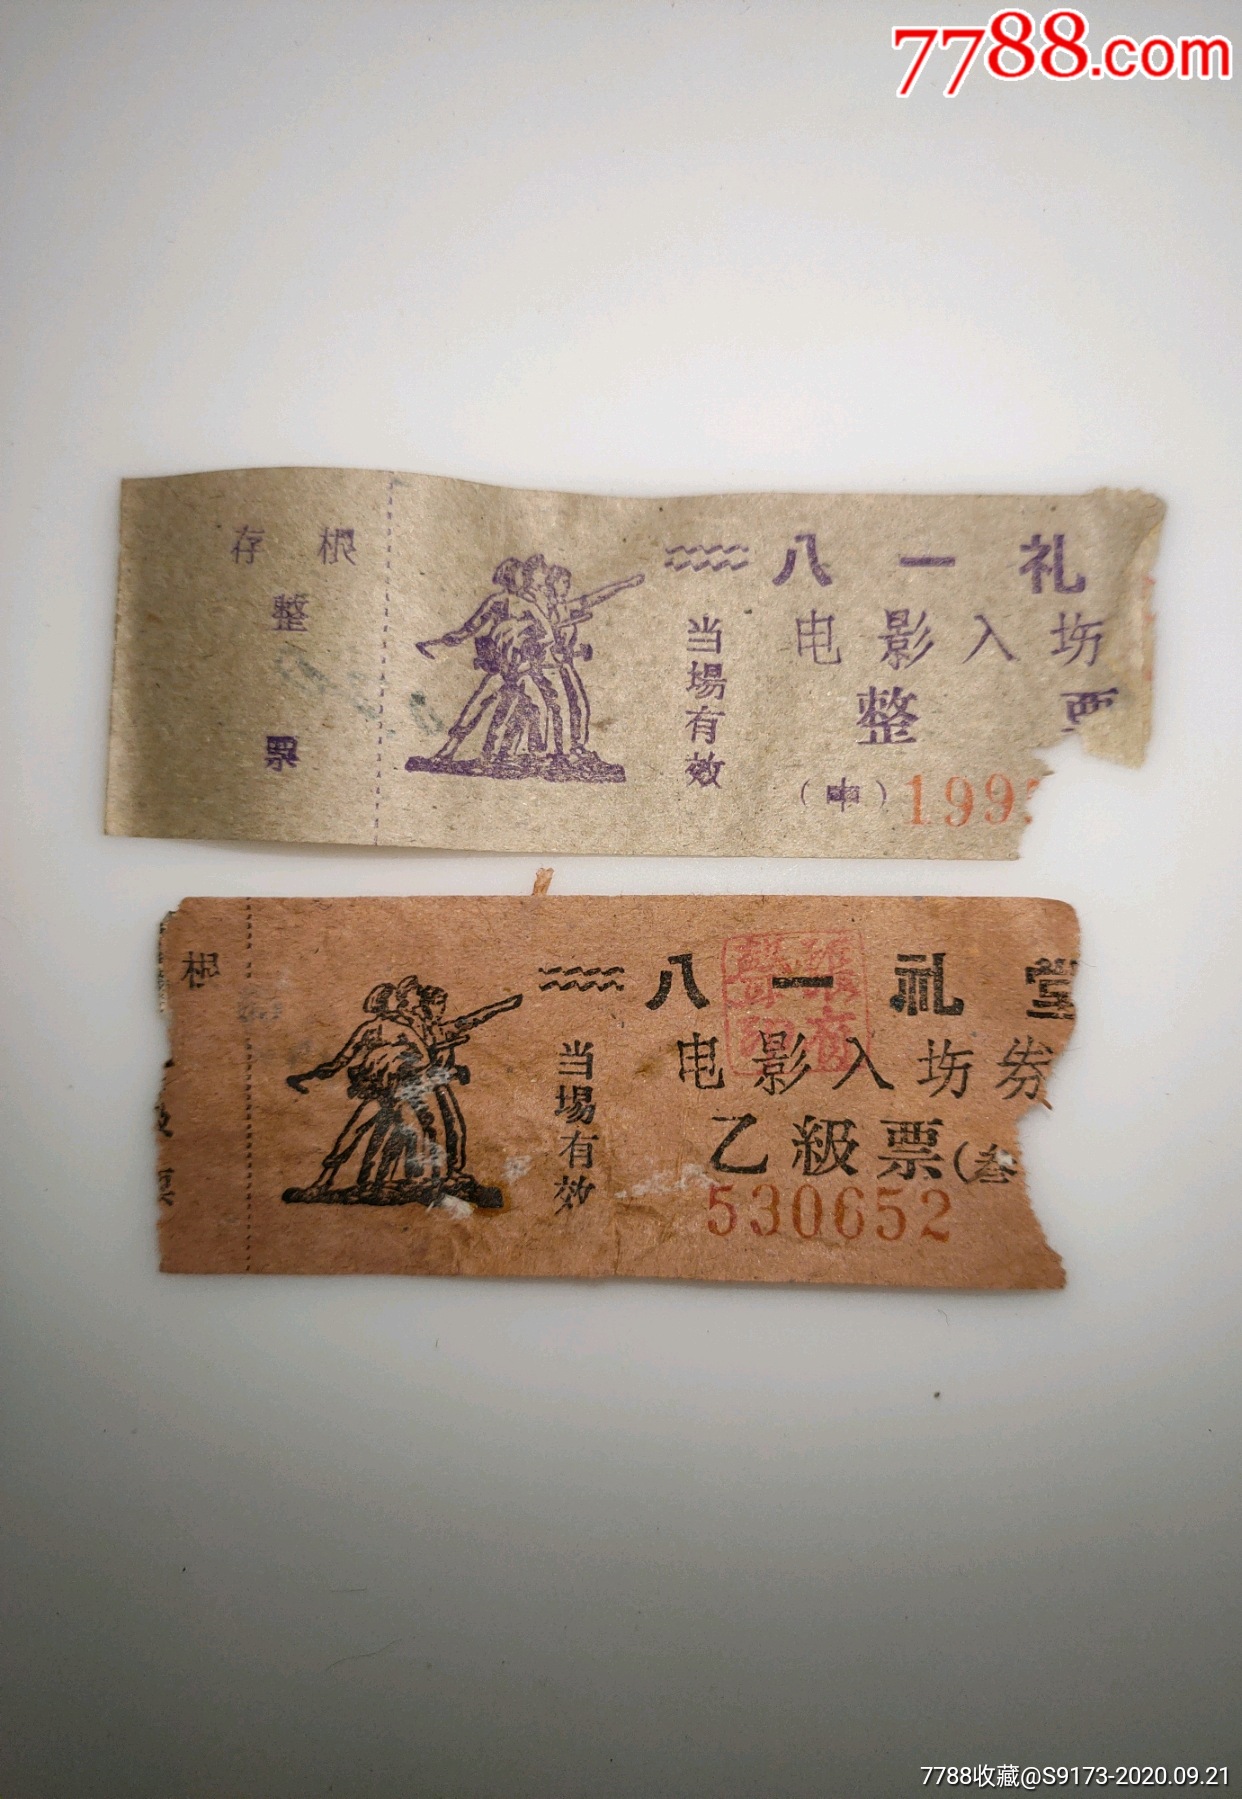 7788.com
存根
整
票
八一礼
电影入场
当場有效
整票
(中) 199
根
票
八一礼堂
电影入场券
当場有效
乙級票(叁
530652
7788收藏@S9173-2020.09.21